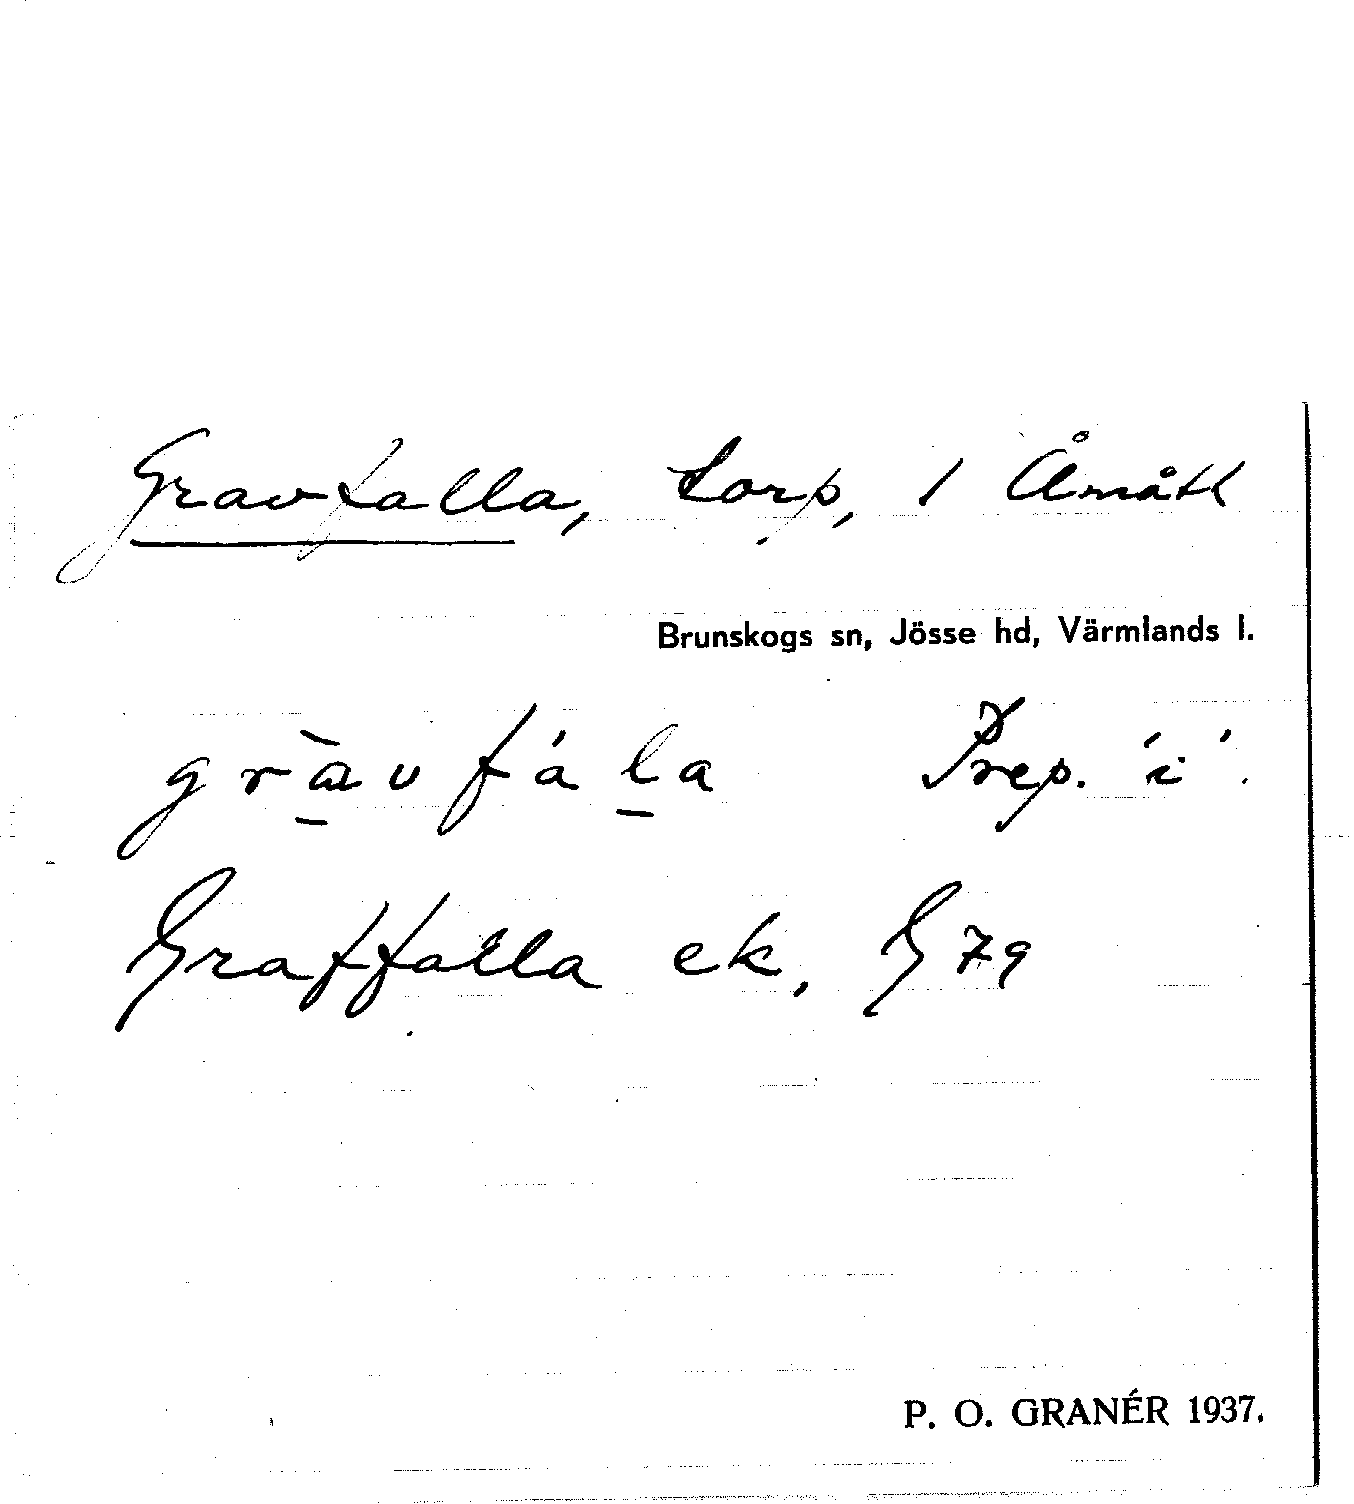 Gravfalla, torp, 1 Åmått
Brunskogs sn, Jösse hd, Värmlands l.
gràvfála Prep. 'i'.
Graffalla ek, G 79
P. O. GRANÉR 1937.